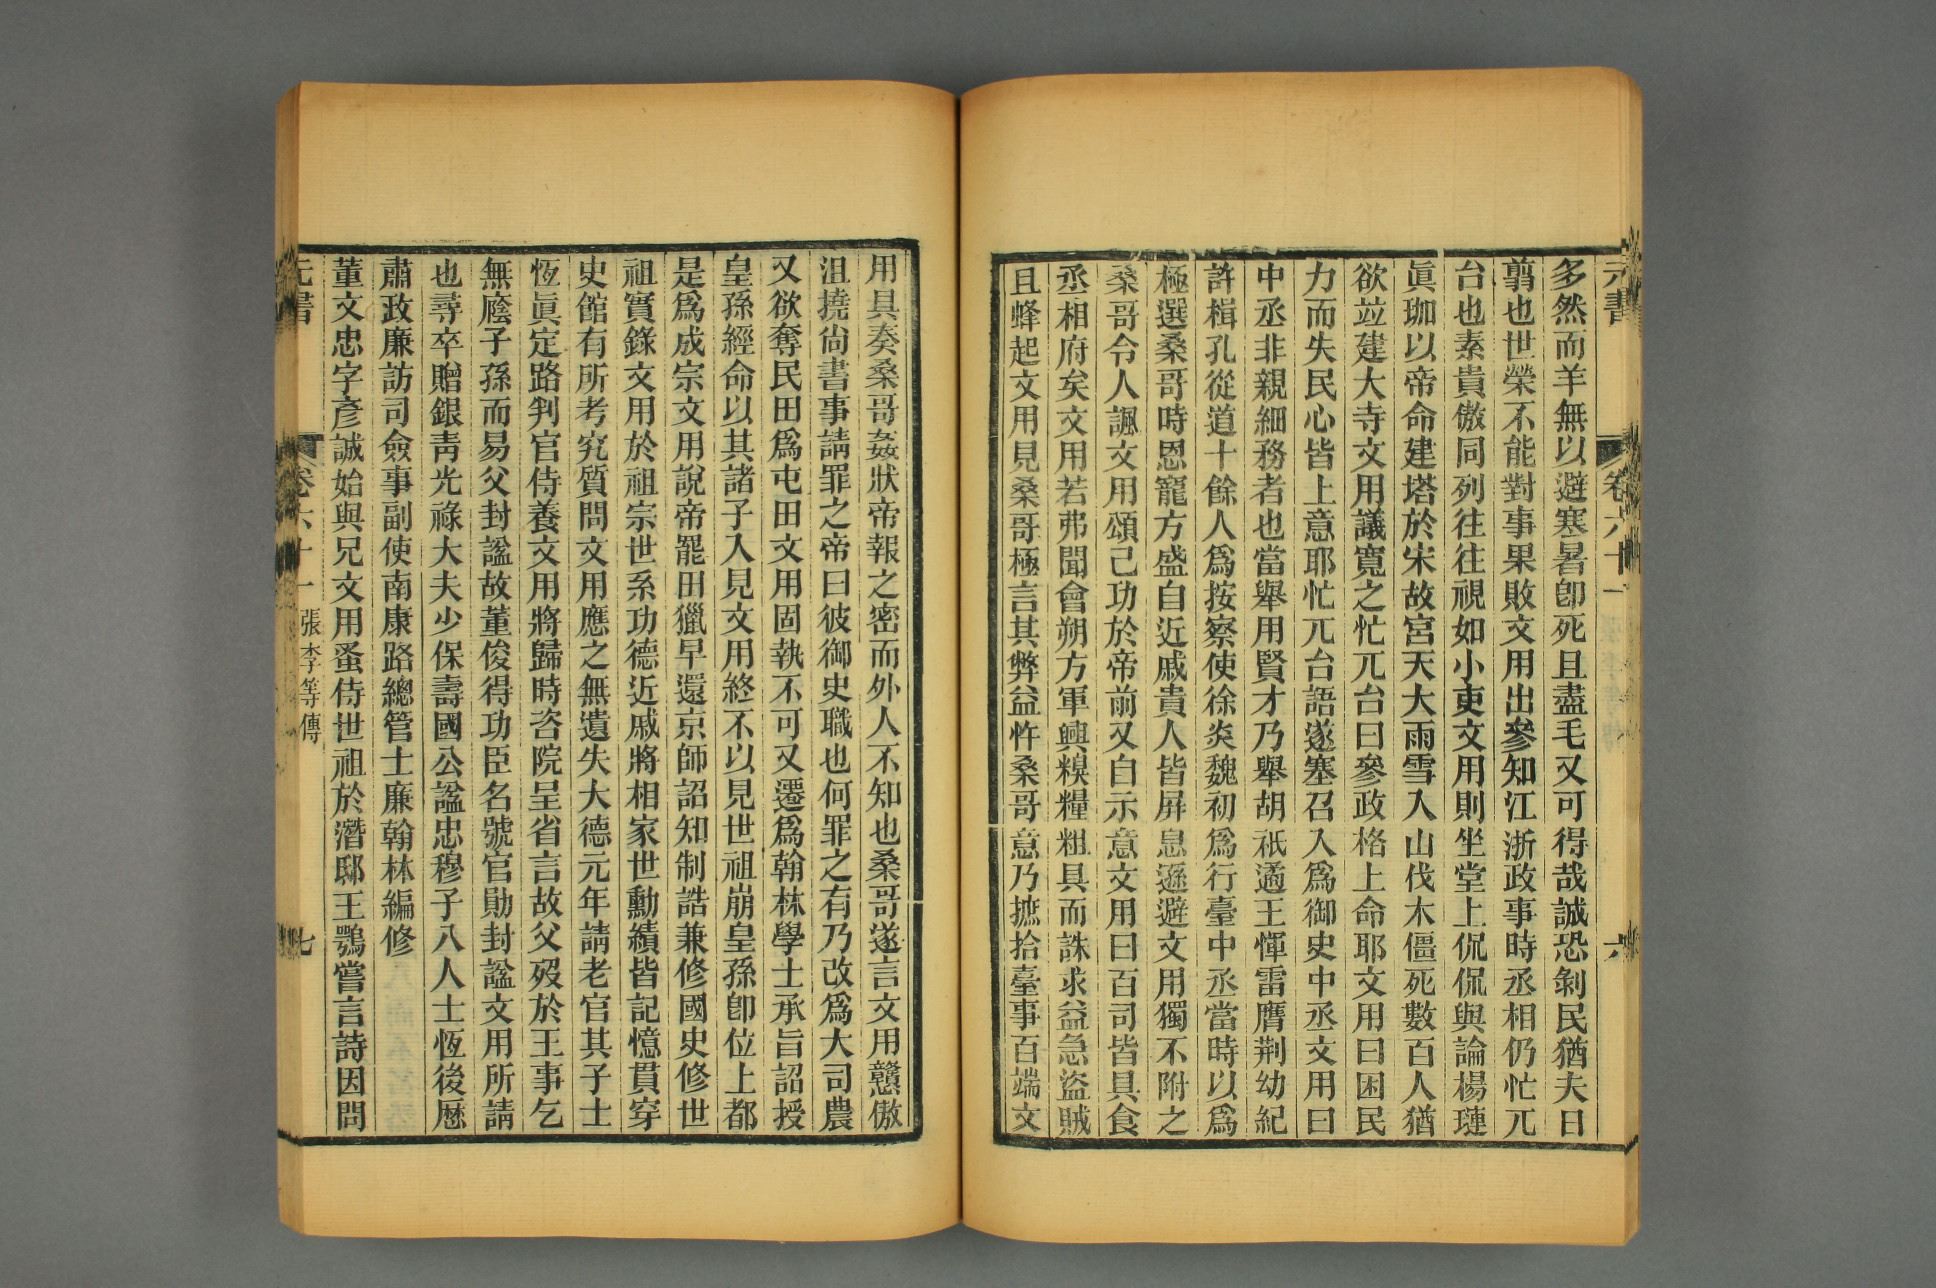 元書
卷六十一
六
多然而羊無以避寒暑卽死且盡毛又可得哉誠恐剝民猶夫日
翦也世榮不能對事果敗文用出參知江浙政事時丞相仍忙兀
台也素貴傲同列往往視如小吏文用則坐堂上侃侃與論楊璉
眞珈以帝命建塔於宋故宮天大雨雪入山伐木僵死數百人猶
欲竝建大寺文用議寬之忙兀台曰參政格上命耶文用曰困民
力而失民心皆上意耶忙兀台語遂塞召入爲御史中丞文用曰
中丞非親細務者也當舉用賢才乃舉胡祇遹王惲雷膺荆幼紀
許楫孔從道十餘人爲按察使徐炎魏初爲行臺中丞當時以爲
極選桑哥時恩寵方盛自近戚貴人皆屛息遜避文用獨不附之
桑哥令人諷文用頌己功於帝前又自示意文用曰百司皆具食
丞相府矣文用若弗聞會朔方軍興糗糧粗具而誅求益急盜賊
且蜂起文用見桑哥極言其弊益忤桑哥意乃摭拾臺事百端文
用具奏桑哥姦狀帝報之密而外人不知也桑哥遂言文用戇傲
沮撓尙書事請罪之帝曰彼御史職也何罪之有乃改爲大司農
又欲奪民田爲屯田文用固執不可又遷爲翰林學士承旨詔授
皇孫經命以其諸子入見文用終不以見世祖崩皇孫卽位上都
是爲成宗文用說帝罷田獵早還京師詔知制誥兼修國史修世
祖實錄文用於祖宗世系功德近戚將相家世勳績皆記憶貫穿
史館有所考究質問文用應之無遺失大德元年請老官其子士
恆眞定路判官侍養文用將歸時咨院呈省言故父歿於王事乞
無廕子孫而易父封諡故董俊得功臣名號官勛封諡文用所請
也尋卒贈銀靑光祿大夫少保壽國公諡忠穆子八人士恆後歷
肅政廉訪司僉事副使南康路總管士廉翰林編修
董文忠字彥誠始與兄文用蚤侍世祖於潛邸王鶚嘗言詩因問
元書
卷六十一
張李等傳
七